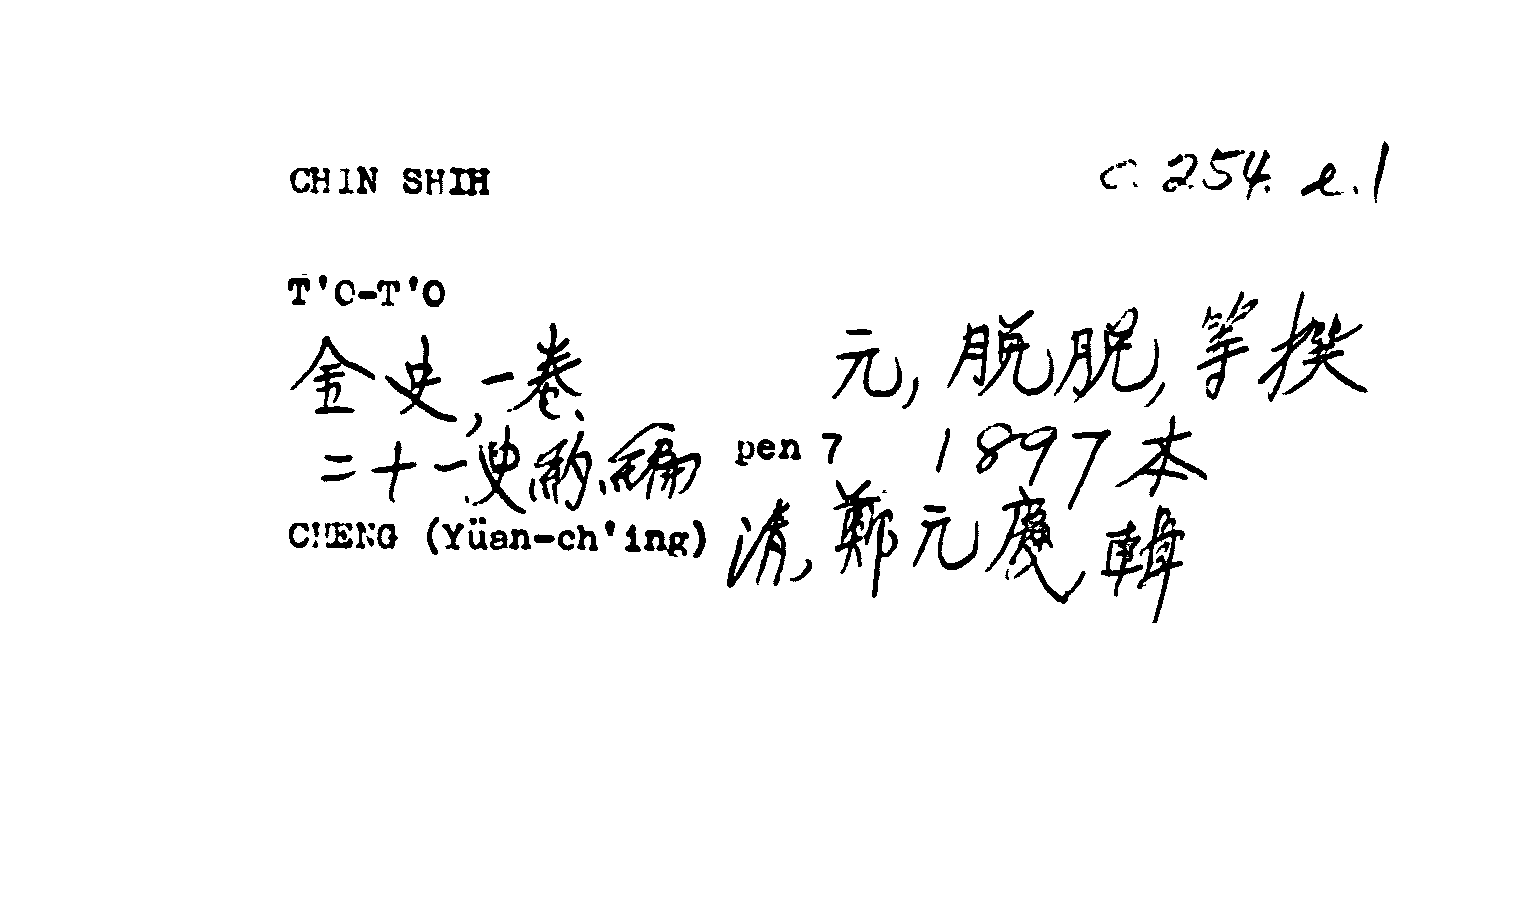 CHIN SHIH c.254.e.1
T'O-T'O
金史,一卷 元,脱脱,等撰
二十一史約編 pen 7 1897本
CHENG (Yüan-ch'ing) 清,鄭元慶輯